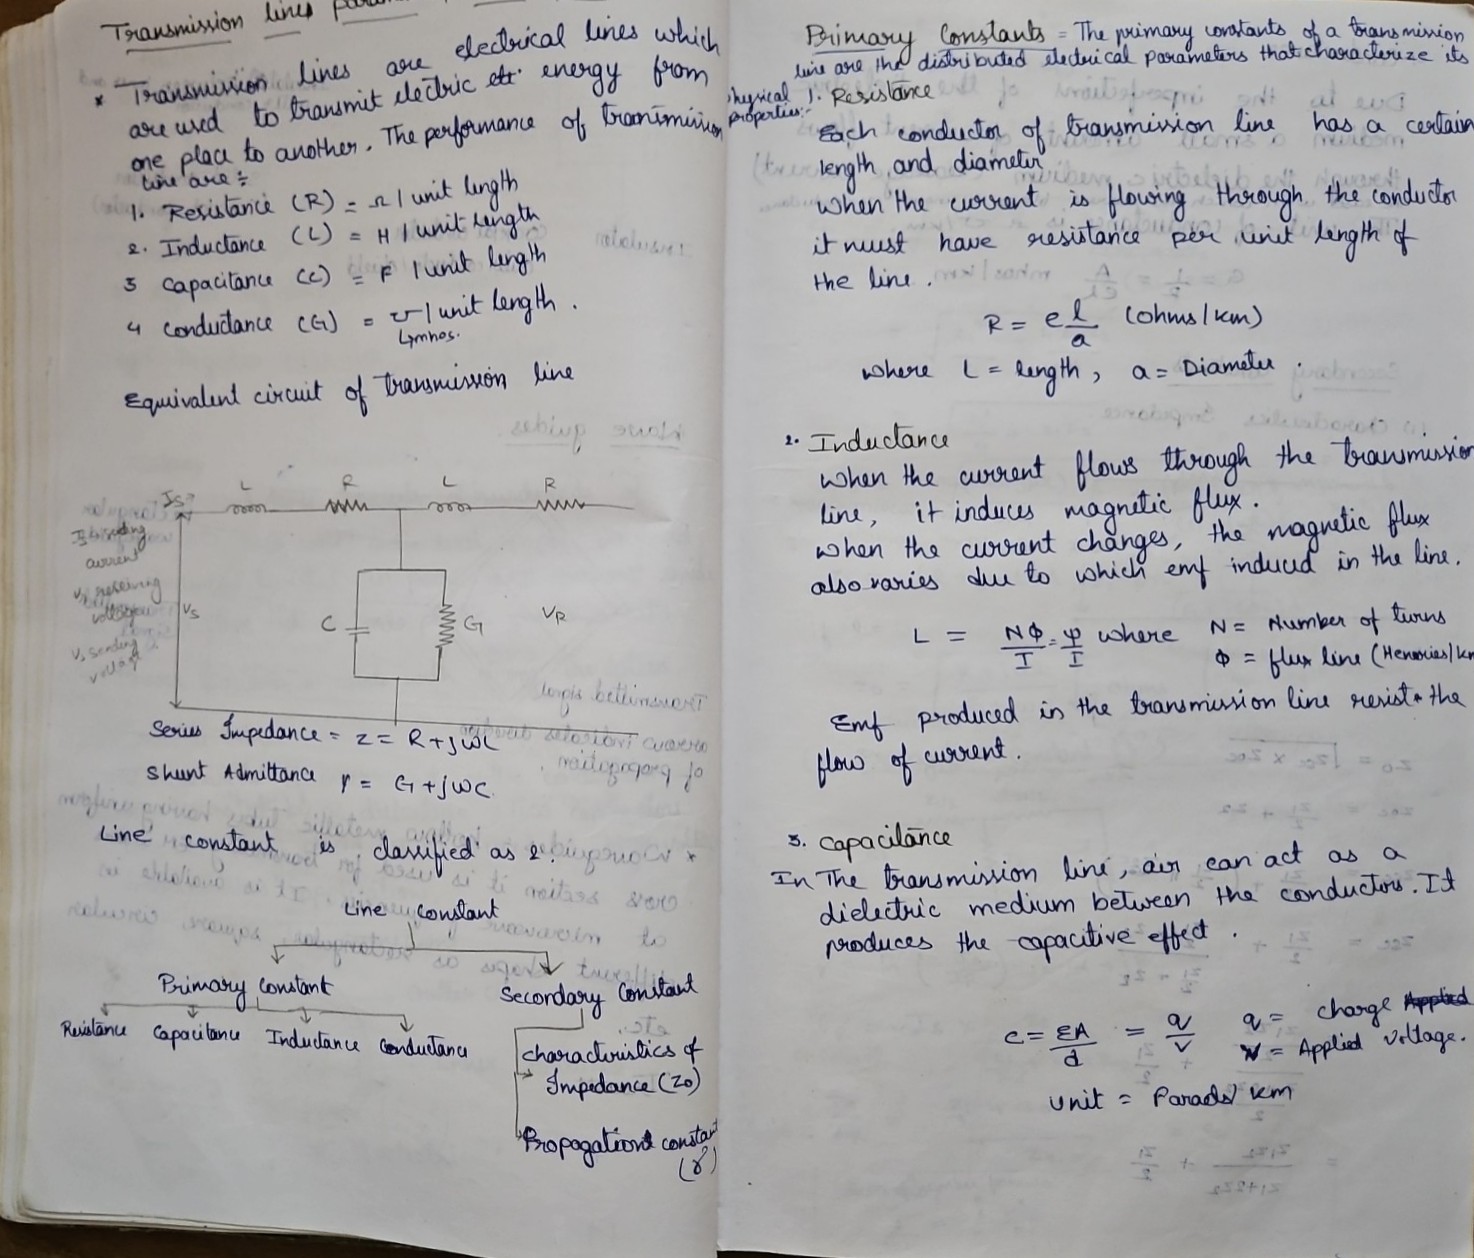 Transmission lines
* Transmission lines are electrical lines which
are used to transmit electric energy from
one place to another. The performance of transmission
line are :-
1. Resistance (R) = Ω / unit length
2. Inductance (L) = H / unit length
3 Capacitance (C) = F / unit length
4 Conductance (G) = ℧ / unit length .
↳mhos.
Equivalent circuit of transmission line
Is L R L R
Is sending
current
VR receiving
voltage
Vs sending
voltage
Vs C G VR
Series Impedance = Z = R+jωL
Shunt Admittance Y = G+jωC
Line constant is classified as 2.
Line constant
Primary constant
Resistance Capacitance Inductance Conductance
Secordary Constant
characteristics of
Impedance (Z0)
Propogations constant
(γ)
Primary Constants = The primary constants of a transmission
line are the distributed electrical parameters that characterize its
physical
properties:-
1. Resistance
Each conductor of transmission line has a certain
length and diameter
when the current is flowing through the conductor
it must have resistance per unit length of
the line .
R = e l/a (ohms/km)
where L = length , a = Diameter .
2. Inductance
when the current flows through the transmission
line, it induces magnetic flux .
when the current changes, the magnetic flux
also varies due to which emf induced in the line.
L = NΦ/I = ψ/I where N = Number of turns
Φ = flux line (Henories/km
Emf produced in the transmission line resist the
flow of current .
3. Capacitance
In The transmission line, air can act as a
dielectric medium between the conductors. It
produces the capacitive effect .
C = εA/d = q/v q = charge Applied
V = Applied voltage.
unit = Farads/km